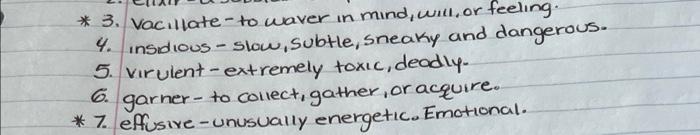 * 3. Vacillate - to waver in mind, will, or feeling.
4. insidious - slow, subtle, sneaky and dangerous.
5. virulent - extremely toxic, deadly.
6. garner - to collect, gather, or acquire.
* 7. effusive - unusually energetic. Emotional.